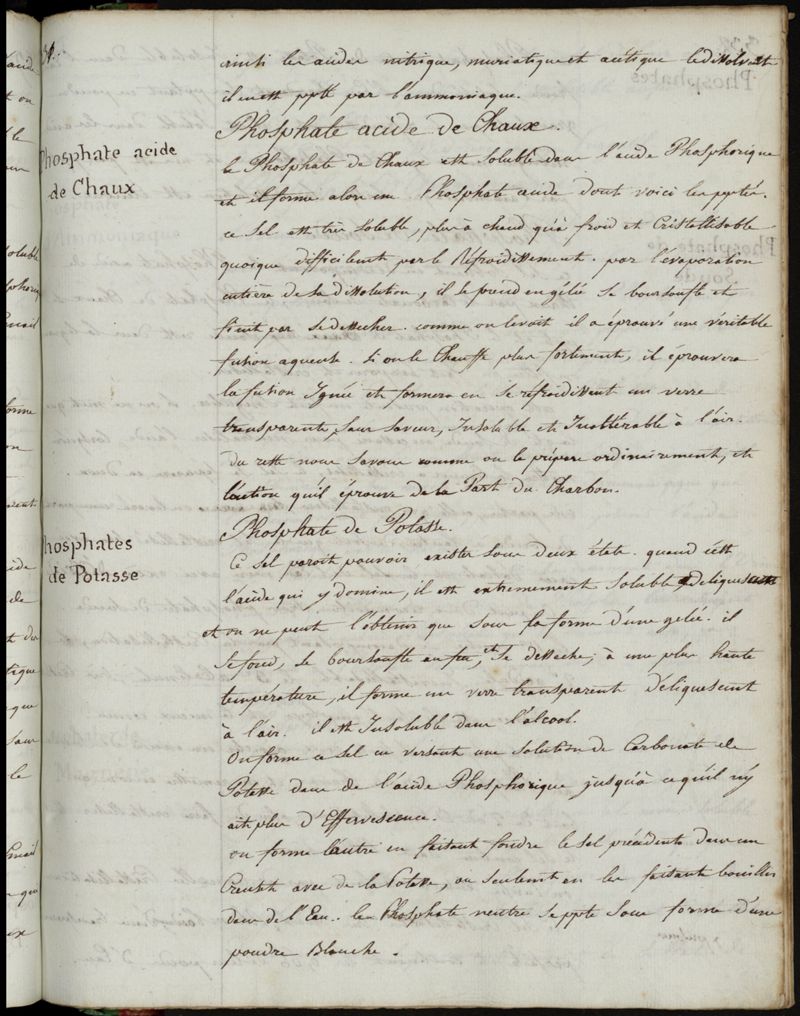 ainsi les acides nitrique, muriatique et acétique le dissolvent
il en est ppté par l'ammoniaque.
Phosphate acide de Chaux.
Phosphate acide
de Chaux
le Phosphate de Chaux est soluble dans l'acide Phosphorique
et il forme alors un Phosphate acide dont voici les pptés.
ce Sel est très soluble, plus à chaud qu'à froid et Cristallisable
quoique difficilemt par le Réfroidissement. par l'évaporation
entière de la dissolution, il se prend en gélée se boursouffle et
finit par se dessecher. comme on le voit il a éprouvé une véritable
fusion aqueuse. Si on le Chauffe plus fortement, il éprouvera
la fusion Ignée et formera en se réfroidissant un verre
transparent, sans saveur, Insoluble et Inaltérable à l'air.
Du reste nous savons comme on le prépare ordinairement, et
l'action qu'il éprouve de la Part du Charbon.
Phosphate de Potasse.
Phosphates
de Potasse
Ce Sel paroit pouvoir exister sous deux états. quand c'est
l'acide qui y domine, il est extremement soluble, déliquescent
et on ne peut l'obtenir que sous la forme d'une gelée. il
se fond, se boursouffle au feu, et se desseche; à une plus haute
température, il forme un verre transparent déliquescent
à l'air. il est Insoluble dans l'alcool.
On forme ce sel en versant une solution de Carbonate de
Potasse dans de l'acide Phosphorique jusqu'à ce qu'il n'y
ait plus d'Effervescence.
on forme l'autre en faisant fondre le sel précédent dans un
Creuset avec de la Potasse, ou seulemt en les faisant bouillir
dans de l'Eau. le Phosphate neutre se ppte sous forme d'une
poudre Blanche.